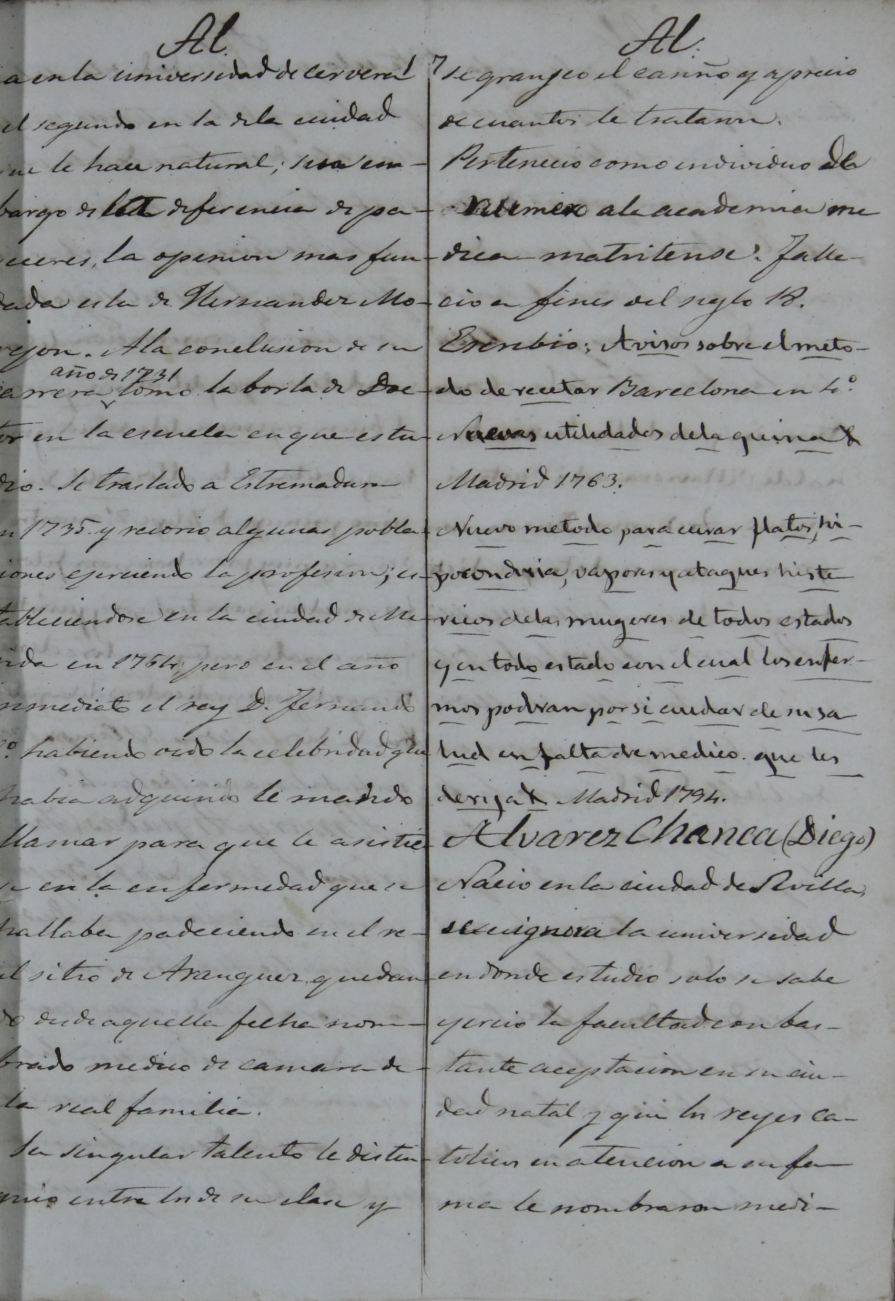 Al.
a en la universidad de cervera!
el segundo en la dela ciudad
ue le hace natural; sin em-
bargo de la diferencia de pa-
eceres, la opinion mas fun-
dada esla de Hernandez Mo-
rejon. Ala conclusion de su
año de 1731
arrera tomo la borla de Doc-
tor en la escuela en que estu-
dio. Se traslado a Estremadura
n 1735. y recorio algunas pobla-
iones ejerciendo la profesion; es-
tableciendose en la ciudad de Me-
rida en 1754, pero en el año
nmediato el rey D. Fernando
6º habiendo oido la celebridad que
habia adquirido le mando
llamar para que le asistie-
se en la enfermedad que se
hallaba padeciendo en el re-
al sitio de Aranguez, quedan-
do desde aquella fecha nom-
brado medico de camara de-
la real familia.
Su singular talento le distin-
guio entre los de su clase y
Al.
se grangeo el cariño y aprecio
de cuantos le trataron.
Pertenecio como individuo dela
numero ala academia me-
dica matritense. Falle-
cio a fines del siglo 18.
Escribio; Avisos sobre el meto-
do de recetar Barcelona en 4.º
Nuevas utilidades dela quina
Madrid 1763.
Nuevo metodo para curar flatos, hi-
pocondria, vapores y ataques histe
ricos delas mugeres de todos estados
y en todo estado con el cual los enfer-
mos podran por si cuidar de su sa
lud en falta de medico. que les
derija Madrid 1794.
Alvarez Chanca (Diego)
Nacio en la ciudad de Sevilla,
se ignora la universidad
en donde estudio solo se sabe
ejercio la facultad con bas-
tante aceptacion en su ciu-
dad natal y que los reyes ca-
tolicos en atencion a su fa-
ma le nombraron medi-